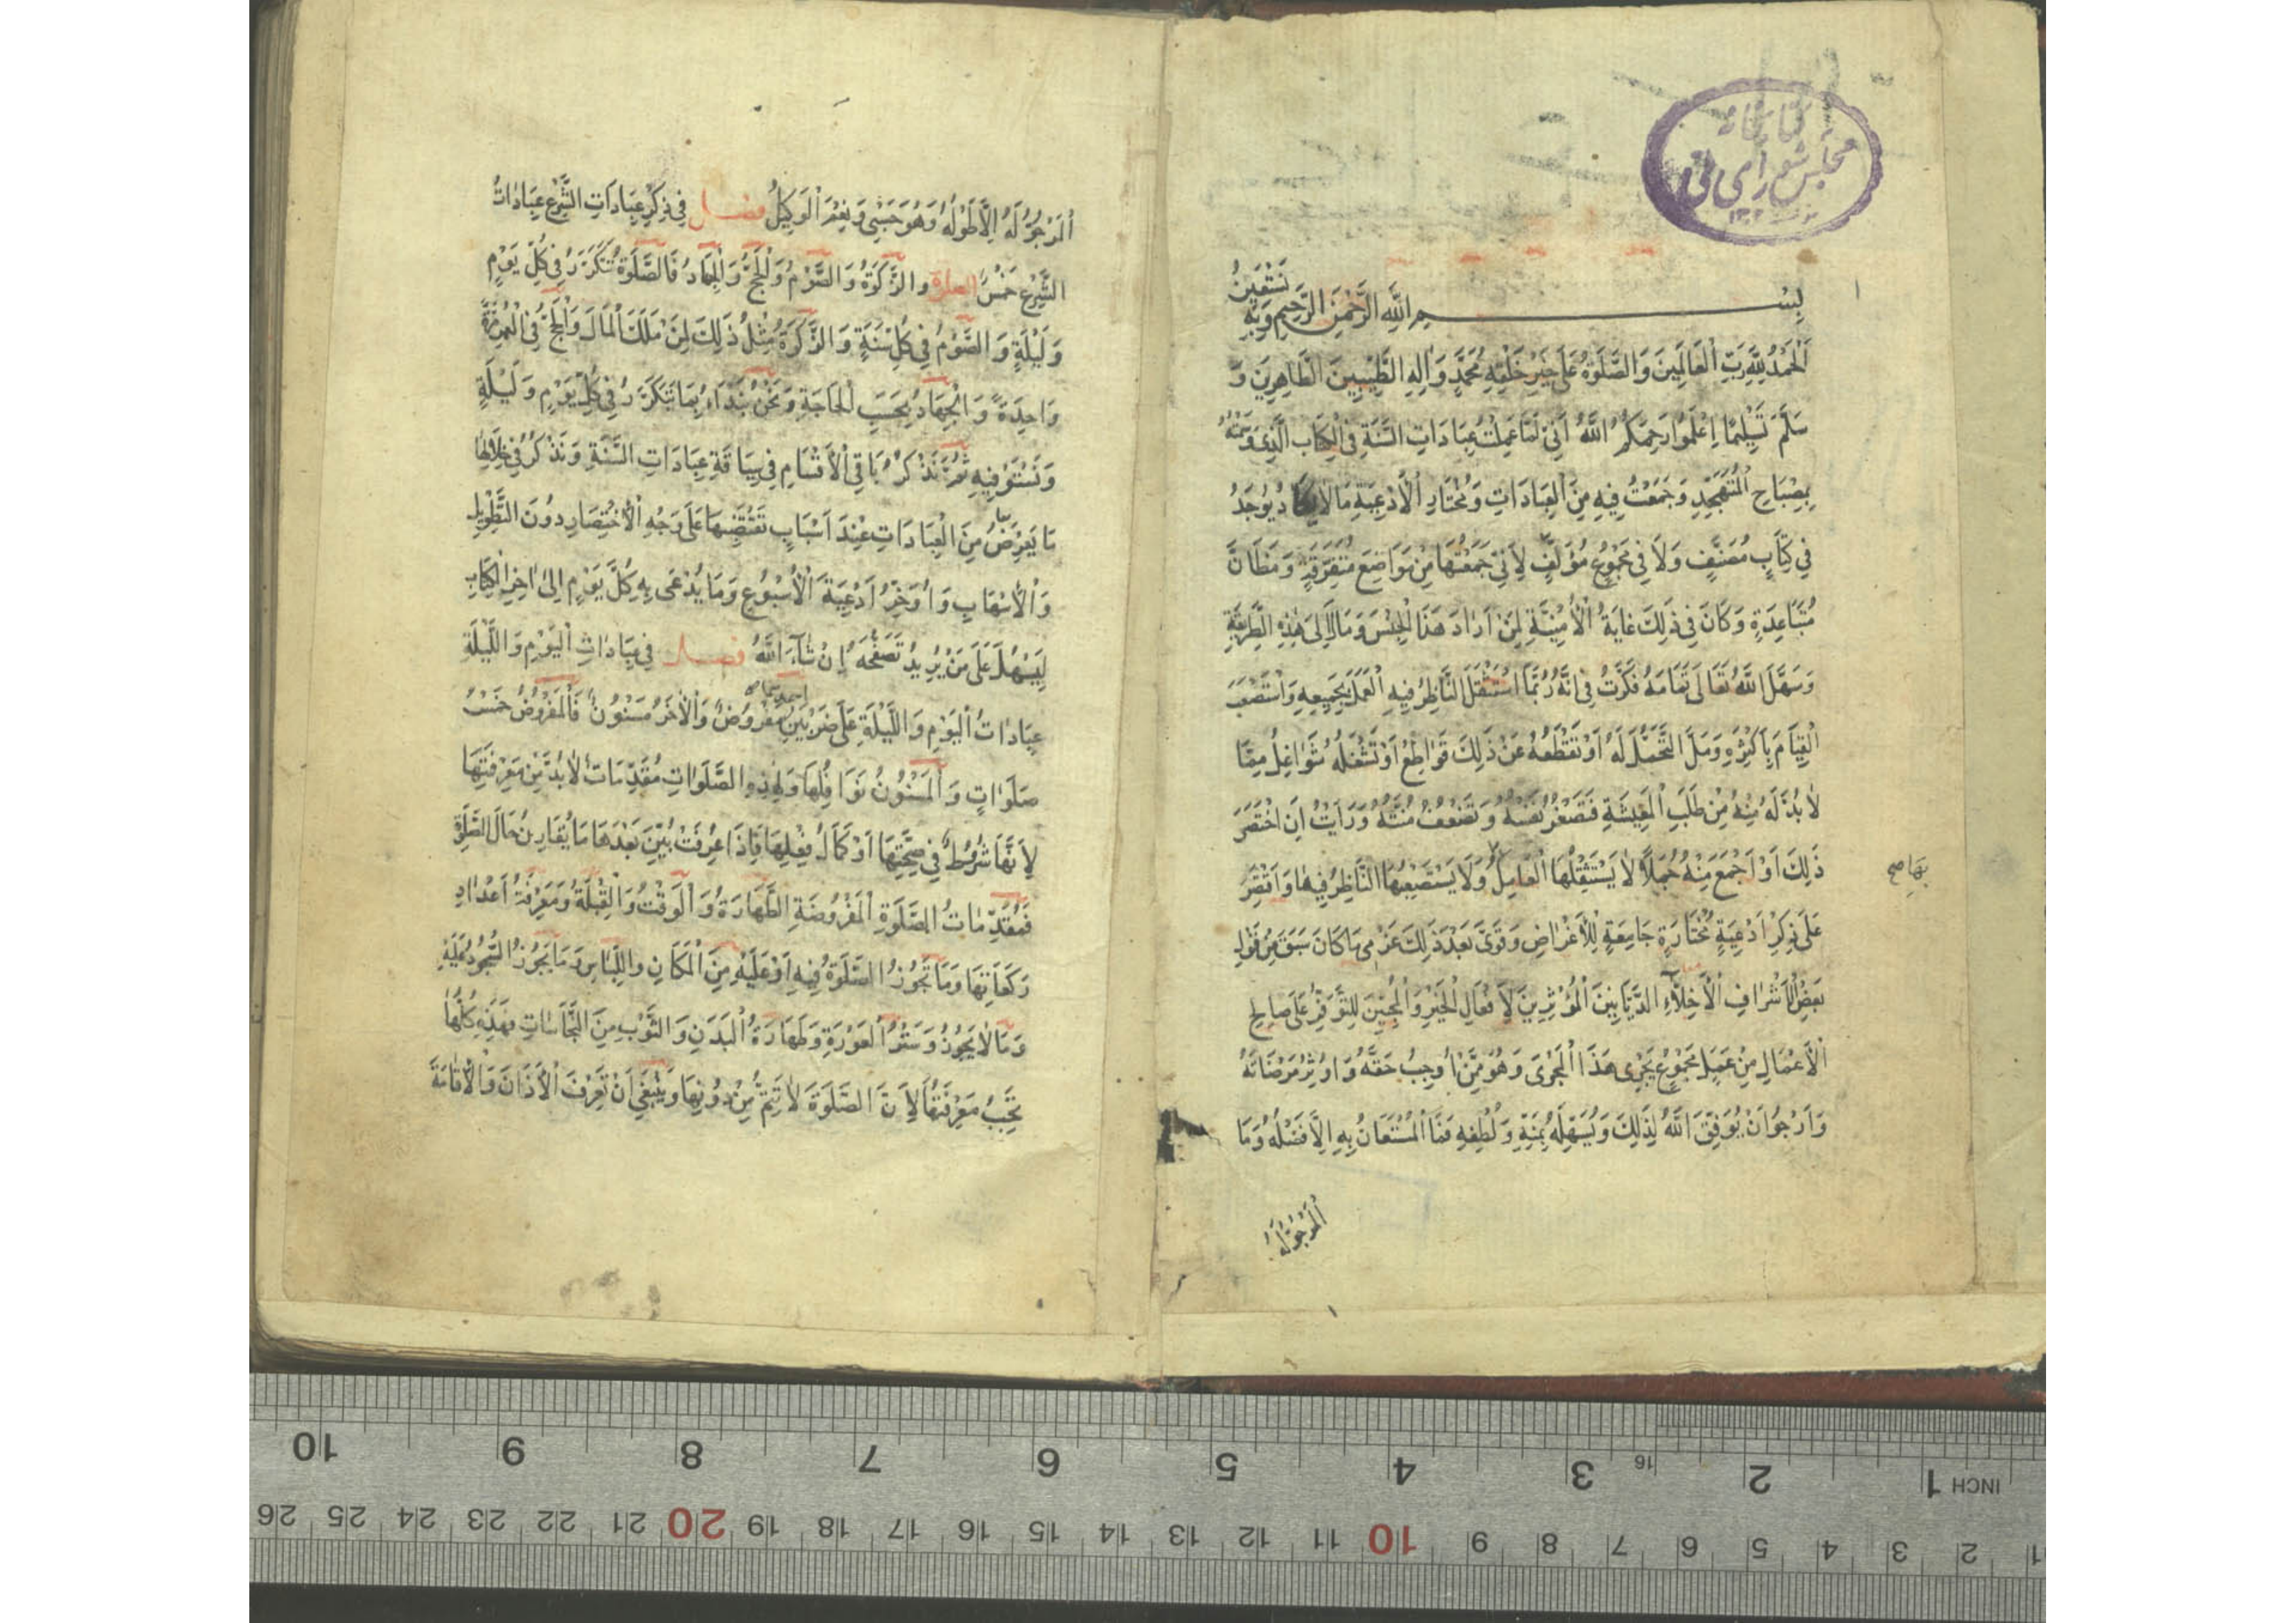 كتابخانه
مجلس شورای ملی
١٣٠٢
بِسْمِ اللهِ الرَّحْمٰنِ الرَّحِيمِ وَبِهِ نَسْتَعِينُ
اَلْحَمْدُ لِلّٰهِ رَبِّ الْعَالَمِينَ وَالصَّلَوةُ عَلَى خَيْرِ خَلْقِهِ مُحَمَّدٍ وَاٰلِهِ الطَّيِّبِينَ الطَّاهِرِينَ وَ
سَلَّمَ تَسْلِيمًا اِعْلَمُوا رَحِمَكُمُ اللهُ اَنِّي لَمَّا عَمِلْتُ عِبَادَاتِ السَّنَةِ فِي الْكِتَابِ الَّذِي وَسَمْتُهُ
بِمِصْبَاحِ الْمُتَهَجِّدِ وَجَمَعْتُ فِيهِ مِنَ الْعِبَادَاتِ وَمُخْتَارِ الْأَدْعِيَةِ مَا لَا يَكَادُ يُوجَدُ
فِي كِتَابٍ مُصَنَّفٍ وَلَا فِي مَجْمُوعٍ مُؤَلَّفٍ لِأَنِّي جَمَعْتُهَا مِنْ مَوَاضِعَ مُتَفَرِّقَةٍ وَمَظَانَّ
مُتَبَاعِدَةٍ وَكَانَ فِي ذٰلِكَ غَايَةُ الْأُمْنِيَّةِ لِمَنْ اَرَادَ هَذَا الْجِنْسَ وَمَالَ إِلَى هٰذِهِ الطَّرِيقَةِ
وَسَهَّلَ اللهُ تَعَالَى تَمَامَهُ فَكَّرْتُ فِي اَنَّهُ رُبَّمَا اسْتَثْقَلَ النَّاظِرُ فِيهِ الْعَمَلَ بِجَمِيعِهِ وَاسْتَصْعَبَ
الْقِيَامَ بِاَكْثَرِهِ وَمَلَّ التَّحَمُّلَ لَهُ اَوْ تَقْطَعُهُ عَنْ ذٰلِكَ قَوَاطِعُ اَوْ تَشْغَلُهُ شَوَاغِلُ مِمَّا
لَا بُدَّ لَهُ مِنْهُ مِنْ طَلَبِ الْمَعِيشَةِ فَتَصْغُرُ نَفْسُهُ وَتَضْعُفُ مُنَّتُهُ وَرَاَيْتُ اَنْ اَخْتَصِرَ
ذٰلِكَ اَوْ اَجْمَعَ مِنْهُ جُمَلاً لَا يَسْتَثْقِلُهَا الْعَامِلُ وَلَا يَسْتَصْعِبُهَا النَّاظِرُ فِيهَا وَاَقْتَصِرَ
بِهَا صح
عَلَى ذِكْرِ اَدْعِيَةٍ مُخْتَارَةٍ جَامِعَةٍ لِلْأَغْرَاضِ وَقَوَّى بَعْدَ ذٰلِكَ عَزْمِي مَا كَانَ سَبَقَ مِنْ قَوْلِ
بَعْضِ الْأَشْرَافِ الْأَخِلَّاءِ الدَّيَّانِينَ الْمُؤْثِرِينَ لِأَفْعَالِ الْخَيْرِ وَالْمُحِبِّينَ لِلتَّوَفُّرِ عَلَى صَالِحِ
الْأَعْمَالِ مِنْ عَمَلِ مَجْمُوعٍ يَجْرِي هَذَا الْمَجْرَى وَهُوَ مِمَّنْ اُوجِبُ حَقَّهُ وَاُوثِرُ مَرْضَاتَهُ
وَاَرْجُو اَنْ يُوَفِّقَ اللهُ لِذٰلِكَ وَيُسَهِّلَهُ بِمَنِّهِ وَلُطْفِهِ فَمَا الْمُسْتَعَانُ بِهِ اِلَّا فَضْلُهُ وَمَا
الْمَرْجُوُّ لَهُ
اَلْمَرْجُوُّ لَهُ اِلَّا طَوْلُهُ وَهُوَ حَسْبِي وَنِعْمَ الْوَكِيلُ فصل فِي ذِكْرِ عِبَادَاتِ الشَّرْعِ عِبَادَاتُ
الشَّرْعِ خَمْسٌ الصلوة وَالزَّكَوةُ وَالصَّوْمُ وَالْحَجُّ وَالْجِهَادُ فَالصَّلَوةُ تَتَكَرَّرُ فِي كُلِّ يَوْمٍ
وَلَيْلَةٍ وَالصَّوْمُ فِي كُلِّ سَنَةٍ وَالزَّكَوةُ مِثْلُ ذٰلِكَ لِمَنْ مَلَكَ الْمَالَ وَالْحَجُّ فِي الْعُمْرِ مَرَّةً
وَاحِدَةً وَالْجِهَادُ بِحَسَبِ الْحَاجَةِ وَنَحْنُ نَبْدَاُ بِمَا تَتَكَرَّرُ فِي كُلِّ يَوْمٍ وَلَيْلَةٍ
وَنَسْتَوْفِيهِ ثُمَّ نَذْكُرُ بَاقِي الْأَقْسَامِ فِي سِيَاقَةِ عِبَادَاتِ السَّنَةِ وَنَذْكُرُ فِي خِلَالِهَا
مَا يَعْرِضُ مِنَ الْعِبَادَاتِ عِنْدَ اَسْبَابٍ تَقْتَضِيهَا عَلَى وَجْهِ الْأِخْتِصَارِ دُونَ التَّطْوِيلِ
وَالْأِسْهَابِ وَاُوَخِّرُ اَدْعِيَةَ الْأُسْبُوعِ وَمَا يُدْعَى بِهِ كُلَّ يَوْمٍ اِلَى اٰخِرِ الْكِتَابِ
لِيَسْهُلَ عَلَى مَنْ يُرِيدُ تَصَفُّحَهُ اِنْ شَاءَ اللهُ فصل فِي عِبَادَاتِ الْيَوْمِ وَاللَّيْلَةِ
عِبَادَاتُ الْيَوْمِ وَاللَّيْلَةِ عَلَى ضَرْبَيْنِ مَفْرُوضٌ وَالْأٰخَرُ مَسْنُونٌ فَالْمَفْرُوضُ خَمْسُ
صَلَوَاتٍ وَالْمَسْنُونُ نَوَافِلُهَا وَلِهٰذِهِ الصَّلَوَاتِ مُقَدِّمَاتٌ لَا بُدَّ مِنْ مَعْرِفَتِهَا
لِأَنَّهَا شُرُوطٌ فِي صِحَّتِهَا اَوْ كَمَالِ فِعْلِهَا فَاِذَا عُرِفَتْ بُيِّنَ بَعْدَهَا مَا يُقَارِنُ حَالَ الصَّلَوةِ
فَمُقَدِّمَاتُ الصَّلَوةِ الْمَفْرُوضَةِ الطَّهَارَةُ وَالْوَقْتُ وَالْقِبْلَةُ وَمَعْرِفَةُ اَعْدَادِ
رَكَعَاتِهَا وَمَا تَجُوزُ الصَّلَوةُ فِيهِ اَوْ عَلَيْهِ مِنَ الْمَكَانِ وَاللِّبَاسِ وَمَا يَجُوزُ السُّجُودُ عَلَيْهِ
وَمَا لَا يَجُوزُ وَسَتْرُ الْعَوْرَةِ وَطَهَارَةُ الْبَدَنِ وَالثَّوْبِ مِنَ النَّجَاسَاتِ فَهٰذِهِ كُلُّهَا
تَجِبُ مَعْرِفَتُهَا لِأَنَّ الصَّلَوةَ لَا تَتِمُّ مِنْ دُونِهَا وَيَنْبَغِي اَنْ تَعْرِفَ الْأَذَانَ وَالْأِقَامَةَ
10 9 8 7 6 5 4 3 16 2 1 INCH
26 25 24 23 22 21 20 19 18 17 16 15 14 13 12 11 10 9 8 7 6 5 4 3 2 1